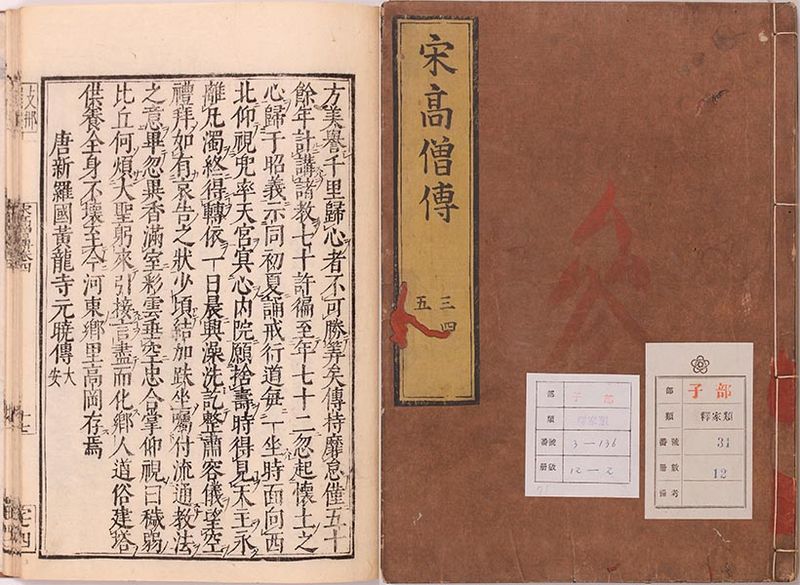 方美譽千里歸心者不可勝筭矣傳持靡怠僅五十
餘年計講諸教七十許徧至年七十二忽起懷土之
心歸于昭義示同初夏誦戒行道每一坐時面向西
北仰視兜率天宮冥心內院願捨壽時得見天主永
離凡濁終得轉依一日晨興澡洗訖整肅容儀望空
禮拜如有哀告之狀少頃結加趺坐囑付流通教法
之意畢忽異香滿室彩雲垂空忠合掌仰視曰穢弱
比丘何煩大聖躬來引接言盡而化鄉人道俗建塔
供養全身不壞至今河東鄉里高岡存焉
唐新羅國黃龍寺元曉傳大安
宋高僧傳
三四
五
部 子部
類 釋家類
番號 3—136
册數 12—2
部 子部
類 釋家類
番號 31
册數 12
備考